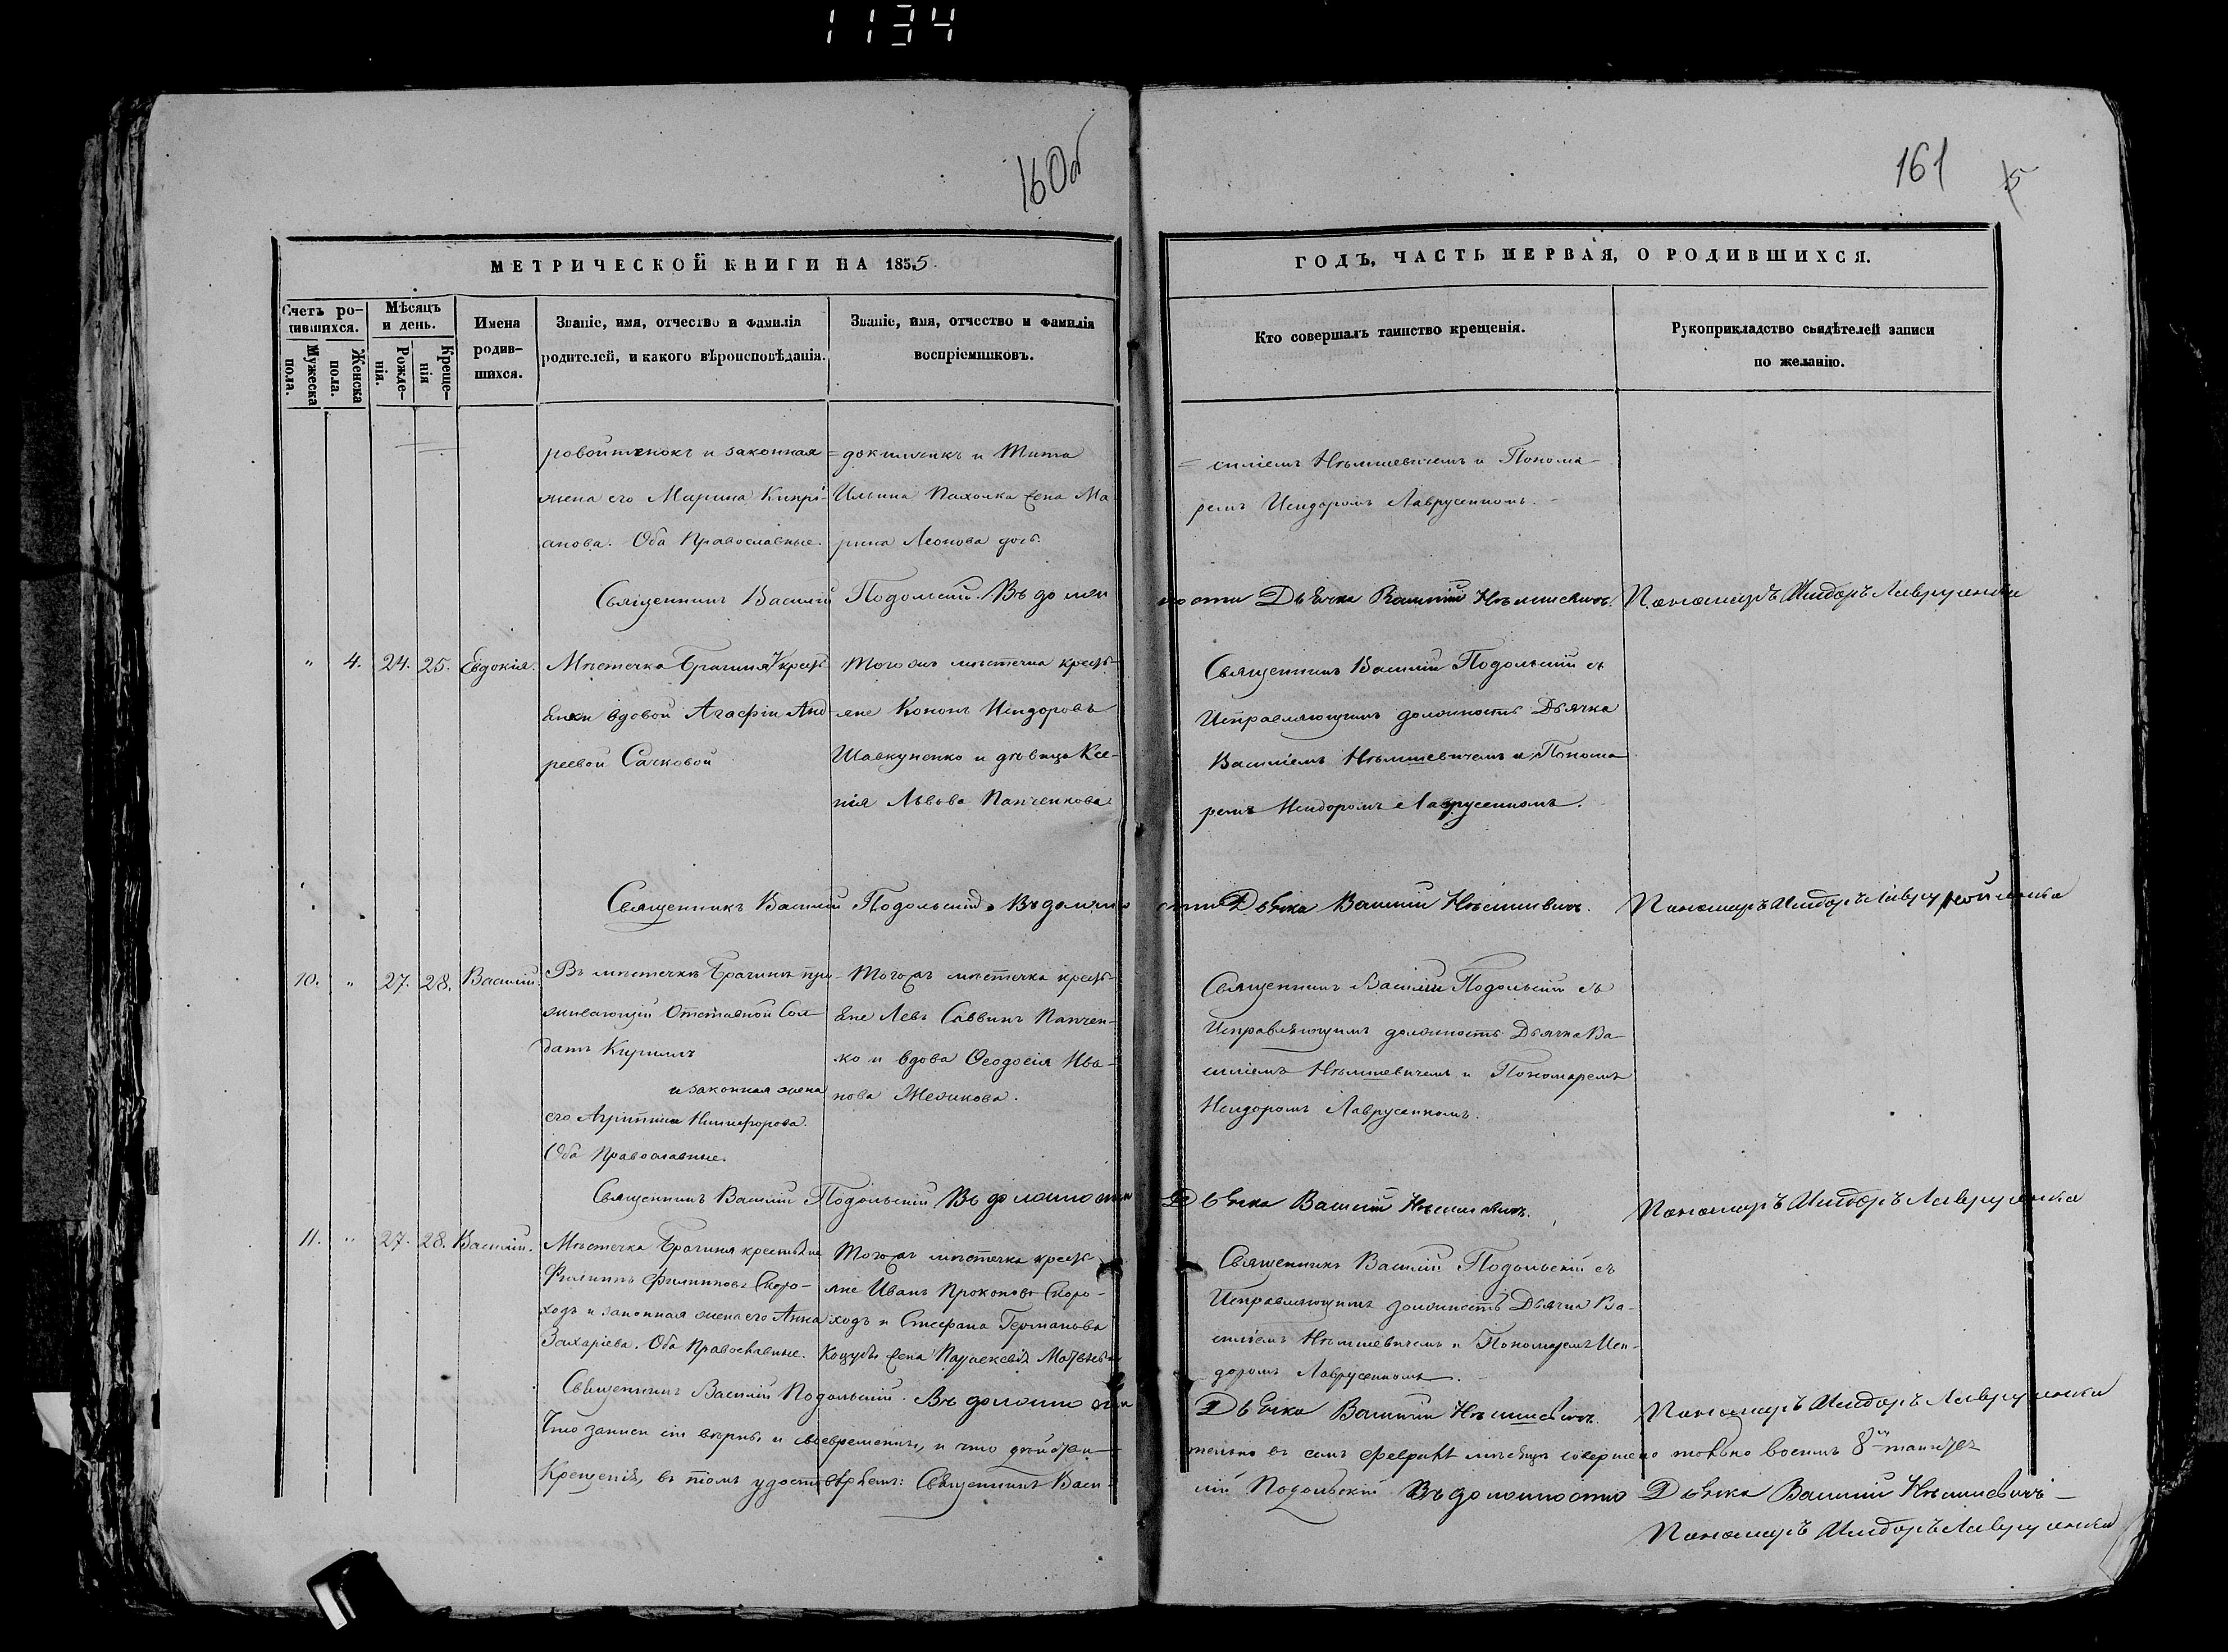 1134
160об
161
15
МЕТРИЧЕСКОЙ КНИГИ НА 1855.
ГОДЪ, ЧАСТЬ ПЕРВАЯ, О РОДИВШИХСЯ.
Счетъ ро-
дившихся.
Мужеска пола.
Женска пола.
Мѣсяцъ
и день.
Рожде-
нія.
Креще-
нія
Имена
родив-
шихся.
Званіе, имя, отчество и фамилія
родителей, и какого вѣроисповѣданія.
Званіе, имя, отчество и фамилія
воспріемниковъ.
Кто совершалъ таинство крещенія.
Рукоприкладство свидѣтелей записи
по желанію.
и законная
жена его Марина Кипрі-
анова. Оба Православные.
и Тита
Ильина Пахолка жена Ма
рина Леонова дочь.
= силіемъ Нѣмшевичемъ и Понома-
ремъ Исидоромъ Лаврусенкомъ.
Священникъ Василій Подольскій. Въ должности Дьячка Василій Нѣмшевичъ. Пономаръ Исидоръ Лаврусенко
" 4. 24. 25. Евдокія.
Мѣстечка Брагиня крестья
янки вдовой Агафіи Анд-
реевой Сачковой
Того жъ мѣстечка кресть-
яне Кононъ Исидоровъ
Шавкуненко и дѣвица Ксе-
нія Львова Панченкова
Священникъ Василій Подольскій съ
Исправляющимъ должность Дьячка
Василіемъ Нѣмшевичемъ и Понома
ремъ Исидоромъ Лаврусенкомъ.
Священникъ Василій Подольскій. Въ должности Дьячка Василій Нѣмшевичъ. Пономаръ Исидоръ
10. " 27. 28. Василій.
Въ мѣстечкѣ Брагинѣ про-
живающій Отставной Сол-
датъ Кириллъ
и законная жена
его Агрипина Никифорова.
Оба Православные.
Того жъ мѣстечка кресть-
яне Левъ Саввинъ Панчен-
ко и вдова Ѳеодосія Ива-
нова
Священникъ Василій Подольскій съ
Исправляющимъ должность Дьячка Ва-
силіемъ Нѣмшевичемъ и Пономаремъ
Исидоромъ Лаврусенкомъ.
Священникъ Василій Подольскій Въ должности Дьячка Василій Нѣмшевичъ. Пономаръ Исидоръ Лаврусенко
11. " 27. 28. Василій.
Мѣстечка Брагиня крестьянинъ
Филиппъ Филипповъ Скоро-
ходъ и законная жена его Анна
Захаріева. Оба Православные.
Того жъ мѣстечка кресть-
яне Иванъ Прокоповъ Скоро-
ходъ и Стефана Германова
Коцубы жена Параскевія Матвѣева
Священникъ Василій Подольскій съ
Исправляющимъ должность Дьячка Ва-
силіемъ Нѣмшевичемъ и Пономаремъ Иси-
доромъ Лаврусенкомъ.
Священникъ Василій Подольскій. Въ должности Дьячка Василій Нѣмшевичъ. Пономаръ Исидоръ Лаврусенко
Что записи сіи вѣрны и своевременны, и что дѣйстви-
тельно въ семъ февралѣ мѣсяцѣ совершено токмо восемь 8 таинствъ
Крещенія, въ томъ удостовѣряемъ: Священникъ Васи-
лій Подольскій Въ должности Дьячка Василій Нѣмшевичъ
Пономаръ Исидоръ Лаврусенко